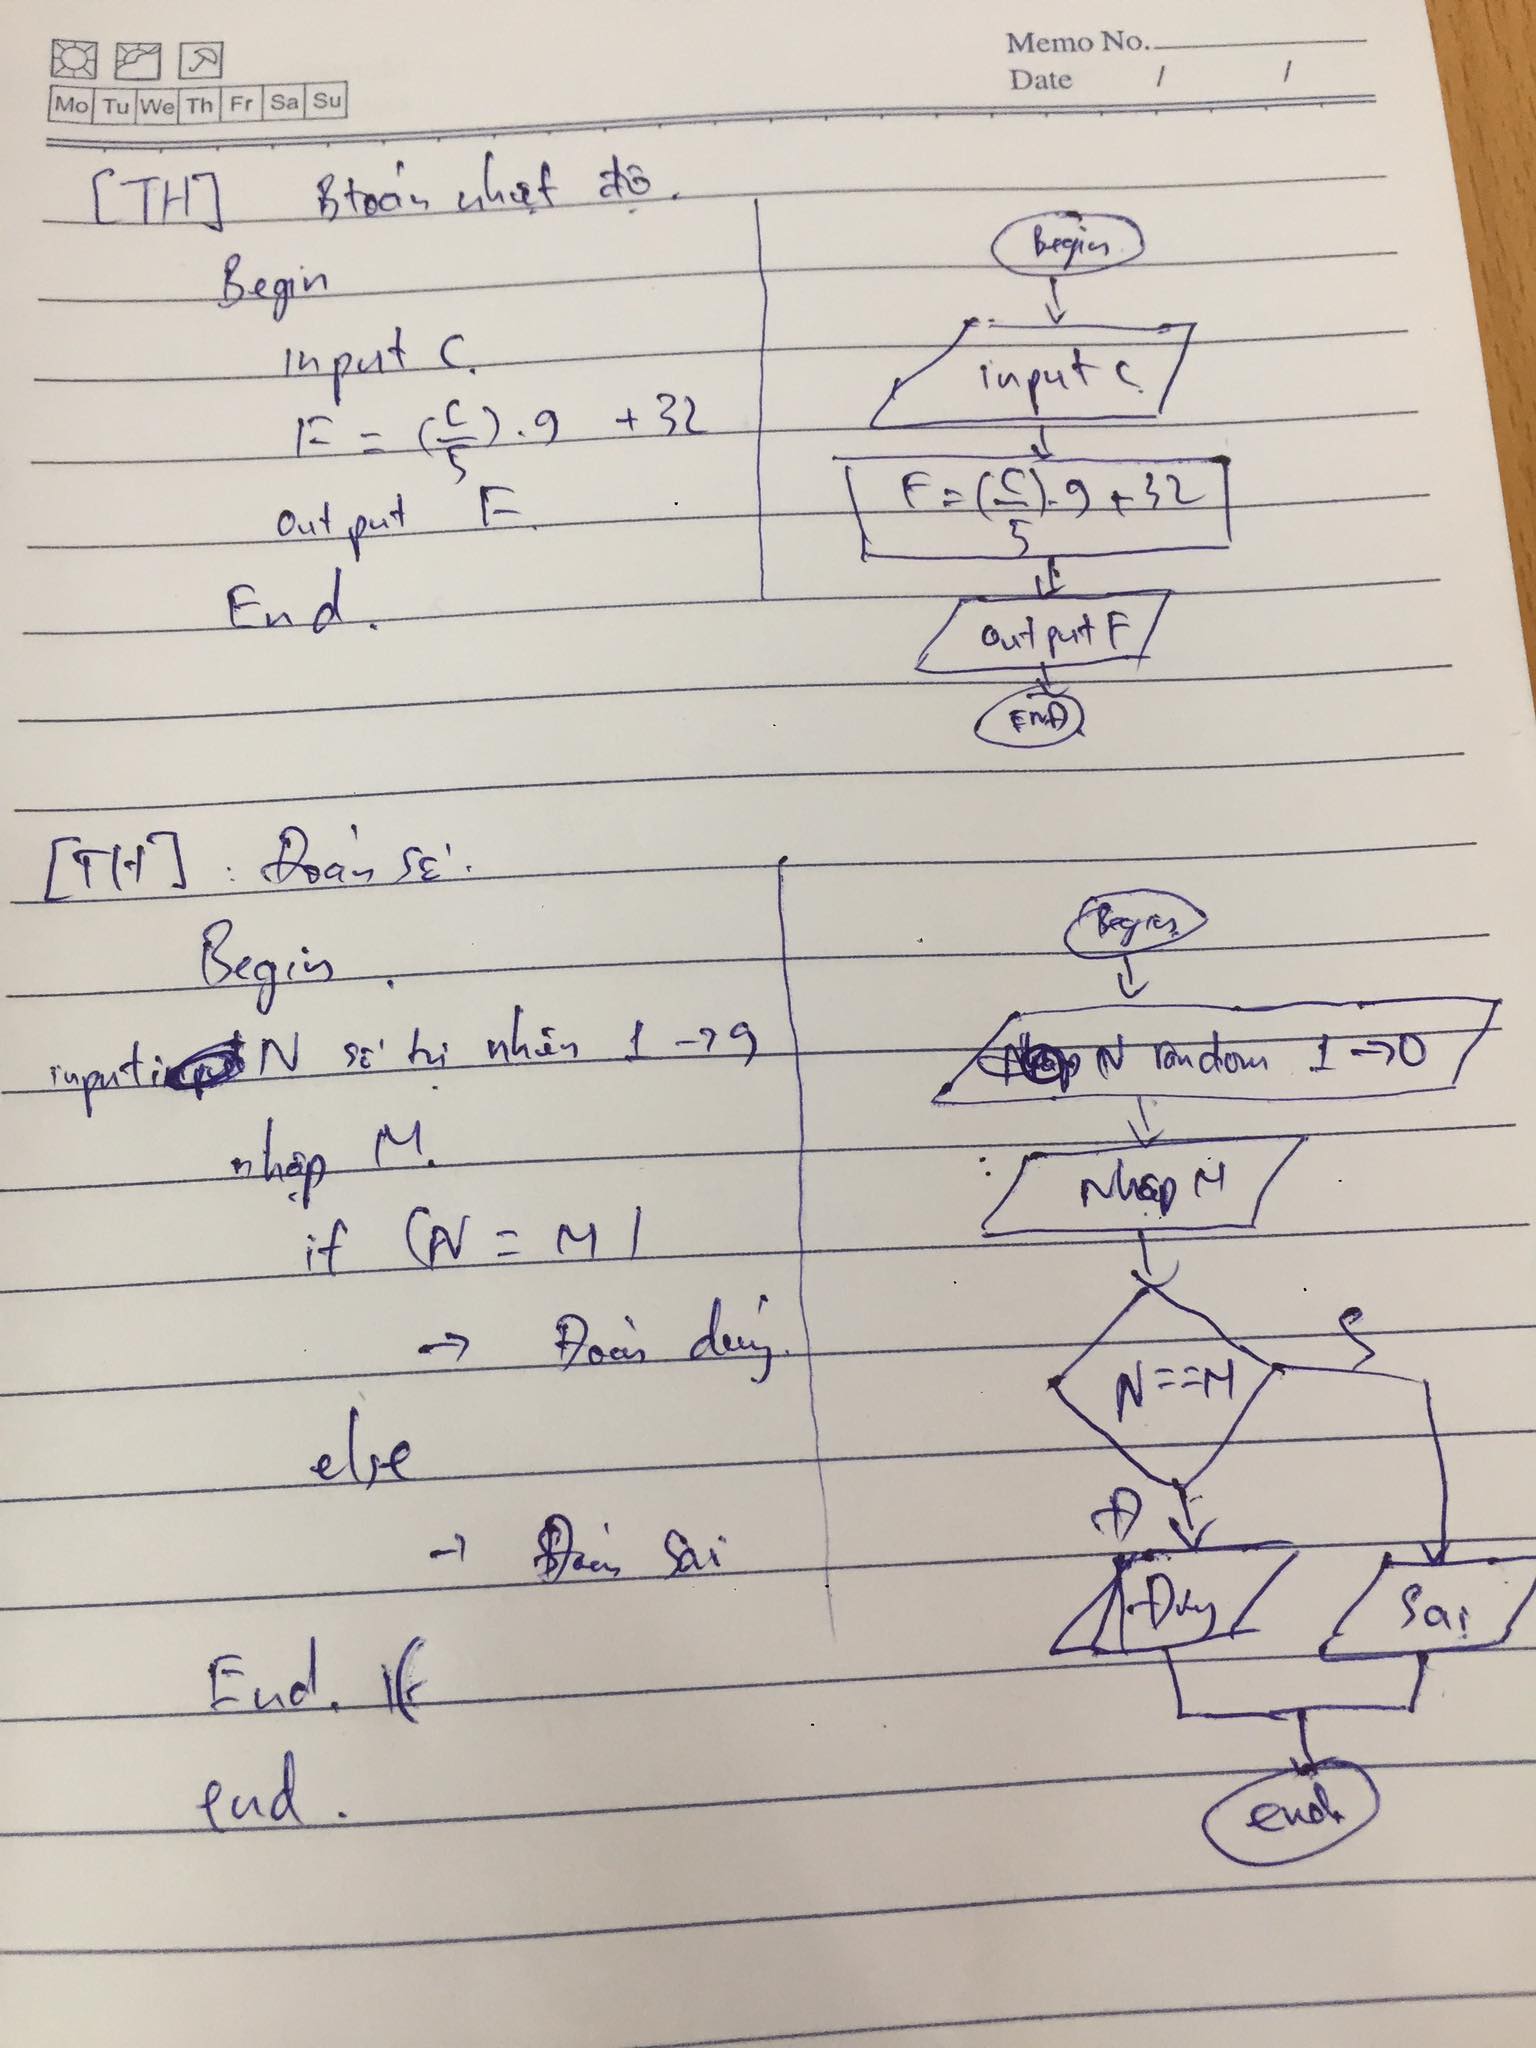 Memo No.
Date / /
Mo Tu We Th Fr Sa Su
[TH] Btoán nhiệt độ.
Begin
input C.
F = (C/5).9 + 32
output F.
End.
Begin
input C
F = (C/5).9 + 32
output F
END
[TH] : Đoán số.
Begin.
input N số tự nhiên 1 → 9
nhập M.
if (N = M)
→ Đoán đúng.
else
→ Đoán sai
End. if
end.
Begin
N random 1 → 0
Nhập M
N==M
S
Đ
Đúng
Sai
end